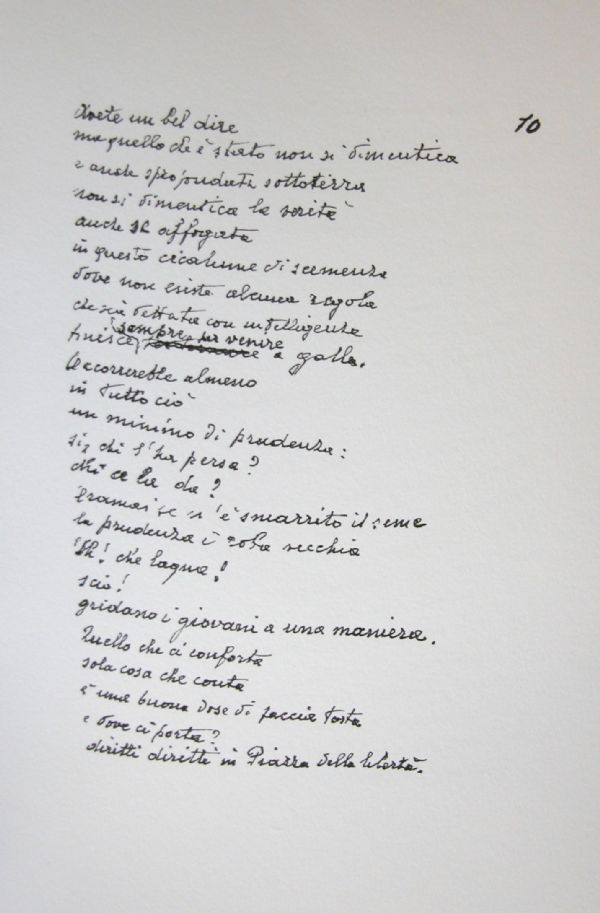 10
Avete un bel dire
ma quello che è stato non si dimentica
e anche sprofondata sottoterra
non si dimentica la verità
anche se affogata
in questo cicalume di scemenze
dove non esiste alcuna regola
che sia dettata con intelligenza
sempre per venire
finisce a galla.
Occorrerebbe almeno
in tutto ciò
un minimo di prudenza:
sì, chi l'ha persa?
chi ce la da?
Oramai se n'è smarrito il seme
la prudenza è roba vecchia
Uh! che lagna!
sciò!
gridano i giovani a una maniera.
Quello che ci conforta
sola cosa che conta
è una buona dose di faccia tosta
e dove ci porta?
diritti diritti in Piazza della libertà.